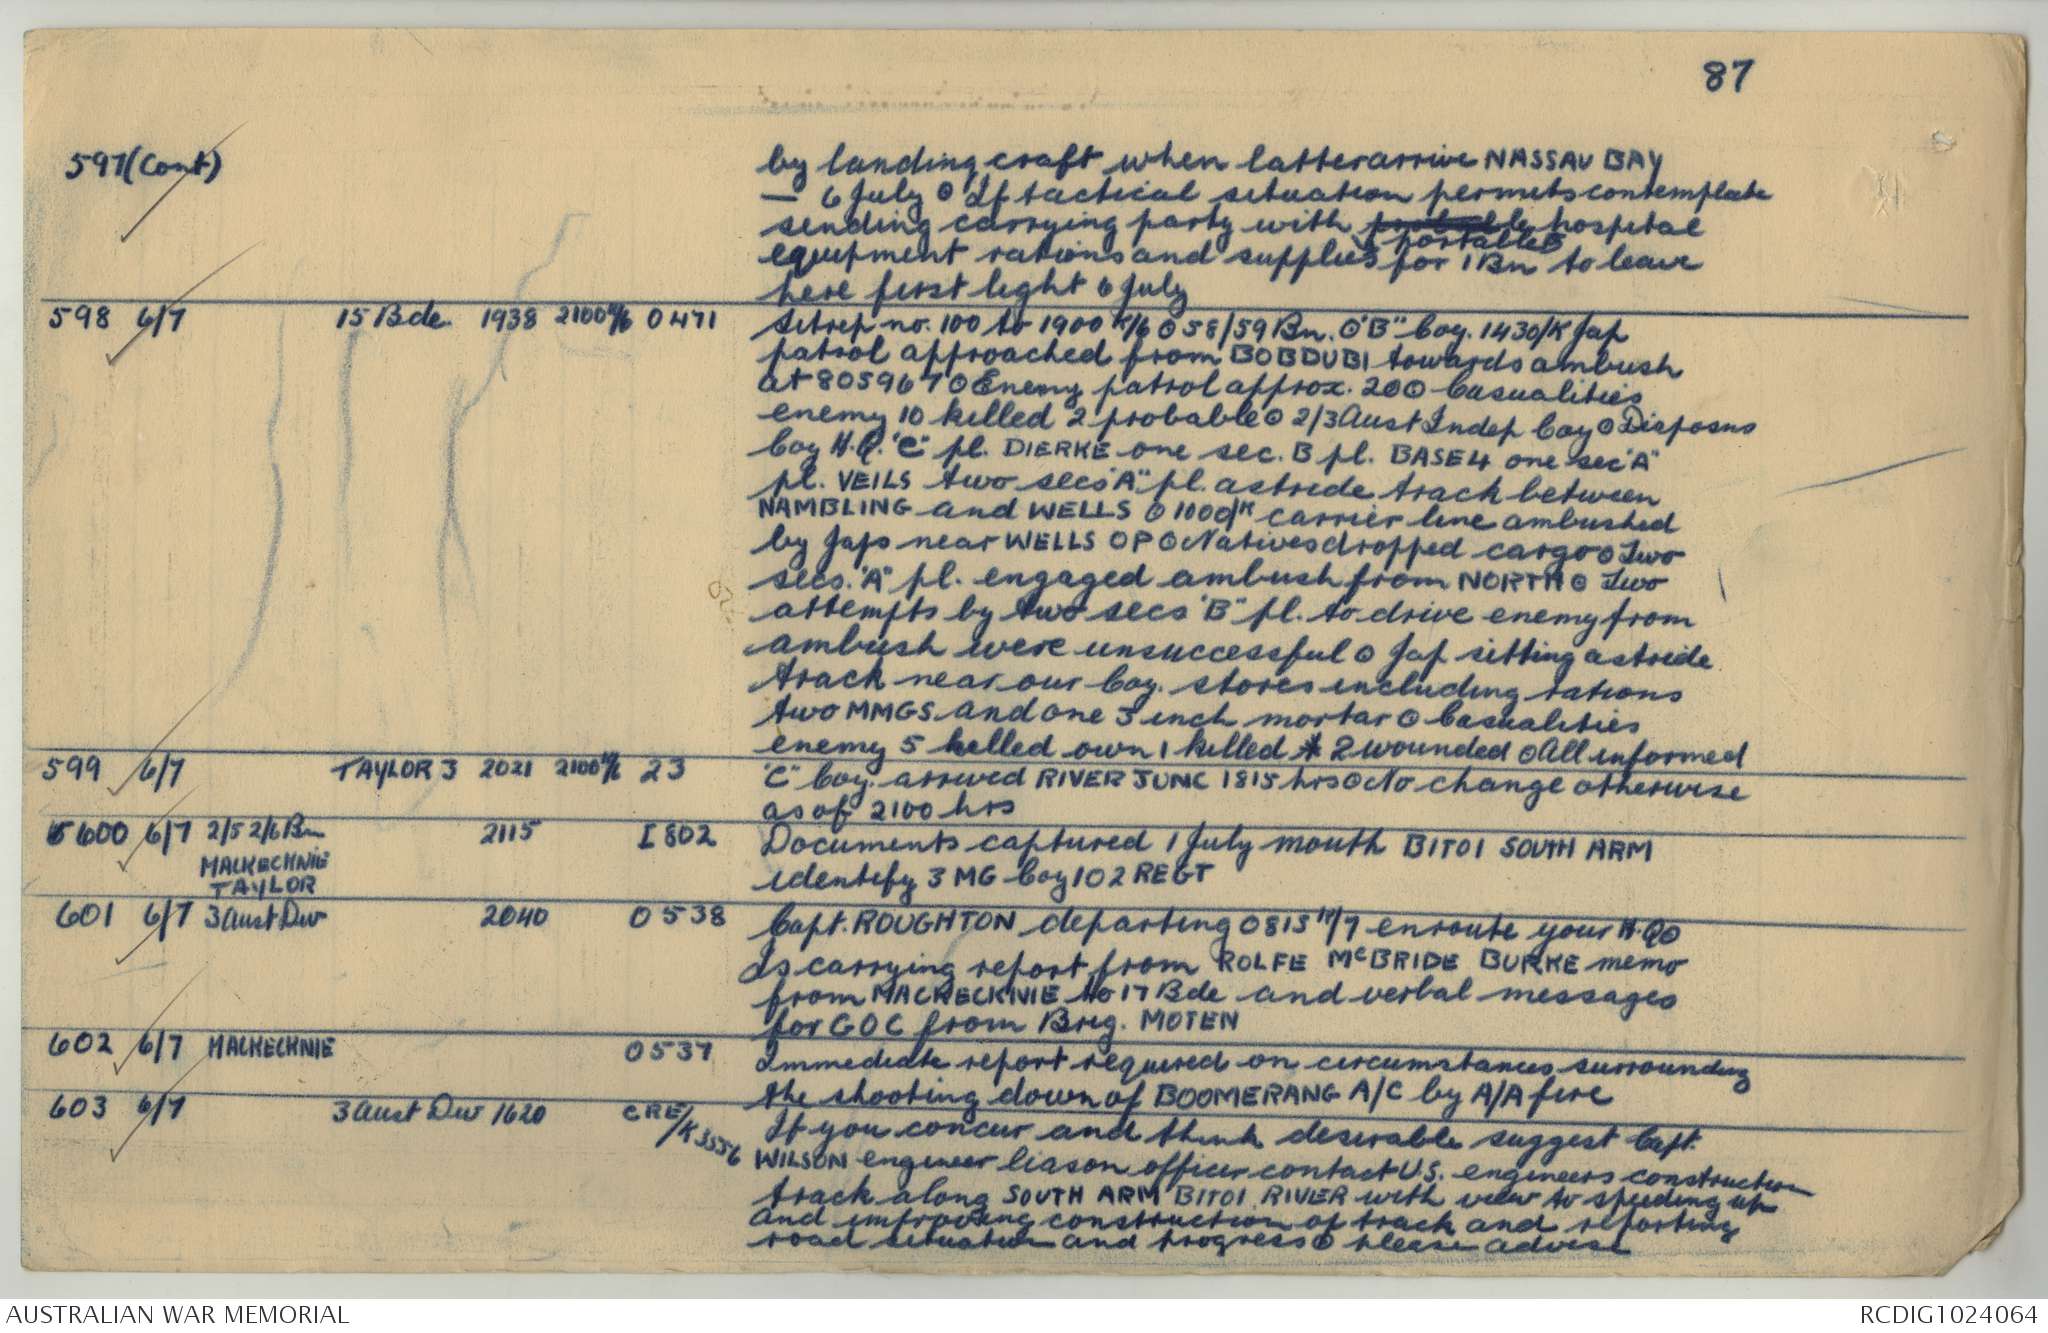 87
597 (Cont)
by landing craft when latter arrive NASSAU BAY
— 6 July ⊙ If tactical situation permits contemplate
sending carrying party with portable hospital
portable
equipment rations and supplies for 1 Bn to leave
here first light 6 July
598 6/7 15 Bde. 1938 2100K/6 O471 Sitrep no. 100 to 1900 K/6 ⊙ 58/59 Bn. ⊙ "B" Coy. 1430/K Jap
patrol approached from BOBDUBI towards ambush
at 805967 ⊙ Enemy patrol approx. 20 ⊙ Casualities
enemy 10 killed 2 probable ⊙ 2/3 Aust Indep Coy ⊙ Disposns
Coy H.Q. "C" pl. DIERKE one sec. B pl. BASE 4 one sec "A"
pl. VEILS two secs "A" pl. astride track between
NAMBLING and WELLS ⊙ 1000/K carrier line ambushed
by Japs near WELLS OP ⊙ Natives dropped cargo ⊙ Two
secs. "A" pl. engaged ambush from NORTH ⊙ Two
attempts by two secs "B" pl. to drive enemy from
ambush were unsuccessful ⊙ Jap sitting astride
track near our Coy. stores including rations
two MMGS and one 3 inch mortar ⊙ Casualities
enemy 5 killed own 1 killed * 2 wounded ⊙ All informed
599 6/7 TAYLOR 3 2021 2100K/6 23 "C" Coy. arrived RIVER JUNC 1815 hrs ⊙ No change otherwise
as of 2100 hrs
600 6/7 2/5 2/6 Bn 2115 I 802 Documents captured 1 July mouth BITOI SOUTH ARM
MACKECHNIE
TAYLOR
identify 3 MG Coy 102 REGT
601 6/7 3 Aust Div 2040 O538 Capt. ROUGHTON departing 0815 K/7 enroute your H.Q ⊙
Is carrying report from ROLFE McBRIDE BURKE memo
from MACKECKNIE to 17 Bde and verbal messages
for GOC from Brig. MOTEN
602 6/7 MACKECKNIE O537 Immediate report required on circumstances surrounding
the shooting down of BOOMERANG A/C by A/A fire
603 6/7 3 Aust Div 1620 CRE/K3556 If you concur and think desirable suggest Capt.
WILSON engineer liason officer contact U.S. engineers construction
track along SOUTH ARM BITOI RIVER with view to speeding up
and improving construction of track and reporting
road situation and progress ⊙ please advise
AUSTRALIAN WAR MEMORIAL
RCDIG1024064